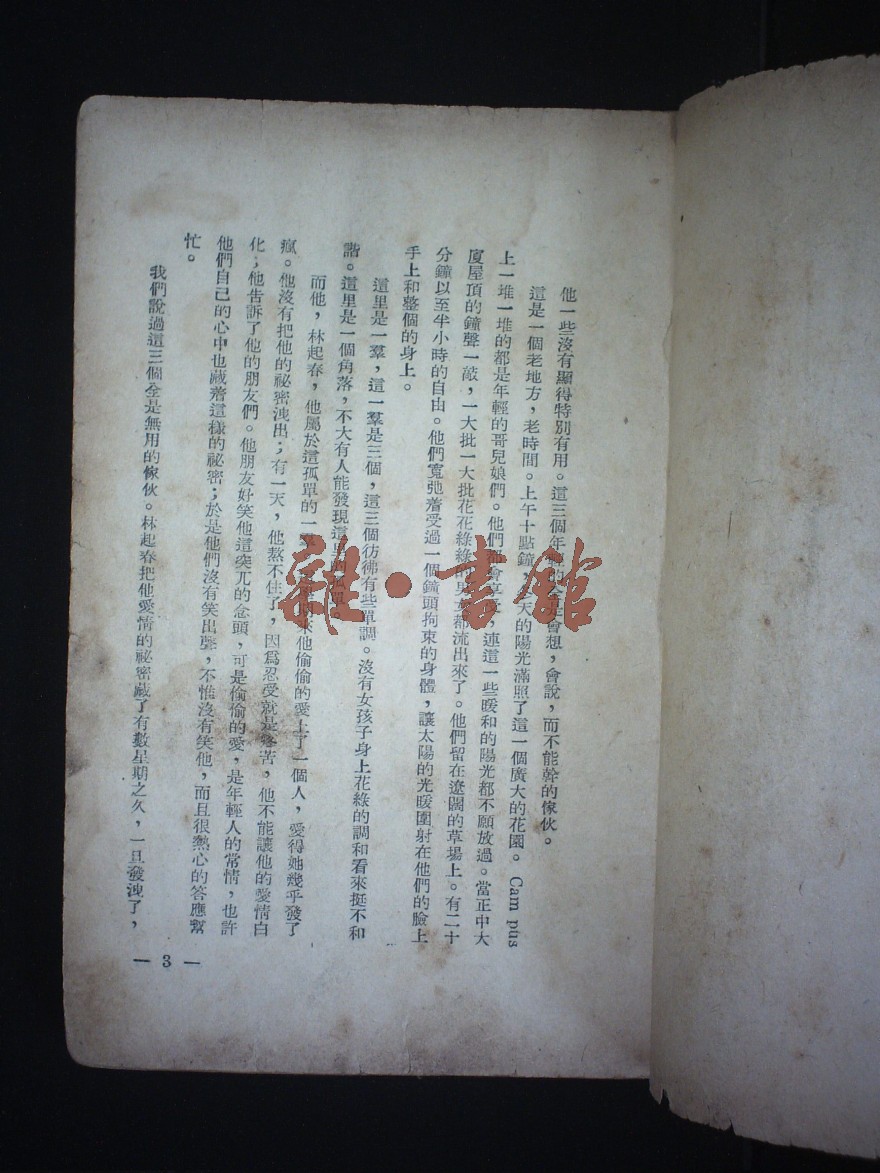 他一些沒有顯得特別有用。這三個年輕的全是會想，會說，而不能幹的傢伙。
這是一個老地方，老時間。上午十點鐘，天的陽光滿照了這一個廣大的花園。Cam pus
上一堆一堆的都是年輕的哥兒娘們。他們都會享受，連這一些暖和的陽光都不願放過。當正中大
廈屋頂的鐘聲一敲，一大批一大批花花綠綠的男女都流出來了。他們留在遼闊的草場上。有二十
分鐘以至半小時的自由。他們寬弛着受過一個鐘頭拘束的身體，讓太陽的光暖圍射在他們的臉上
手上和整個的身上。
這里是一羣，這一羣是三個，這三個彷彿有些單調。沒有女孩子身上花綠的調和看來挺不和
諧。這里是一個角落，不大有人能發現這里
而他，林起春，他屬於這孤單的一羣，來他偷偷的愛上了一個人，愛得她幾乎發了
瘋。他沒有把他的祕密洩出；有一天，他熬不住了，因爲忍受就是痛苦，他不能讓他的愛情白
化；他告訴了他的朋友們。他朋友好笑他這突兀的念頭，可是偷偷的愛，是年輕人的常情，也許
他們自己的心中也藏着這樣的祕密；於是他們沒有笑出聲，不惟沒有笑他，而且很熱心的答應幫
忙。
我們說過這三個全是無用的傢伙。林起春把他愛情的祕密藏了有數星期之久，一旦發洩了，
— 3 —
雜·書館